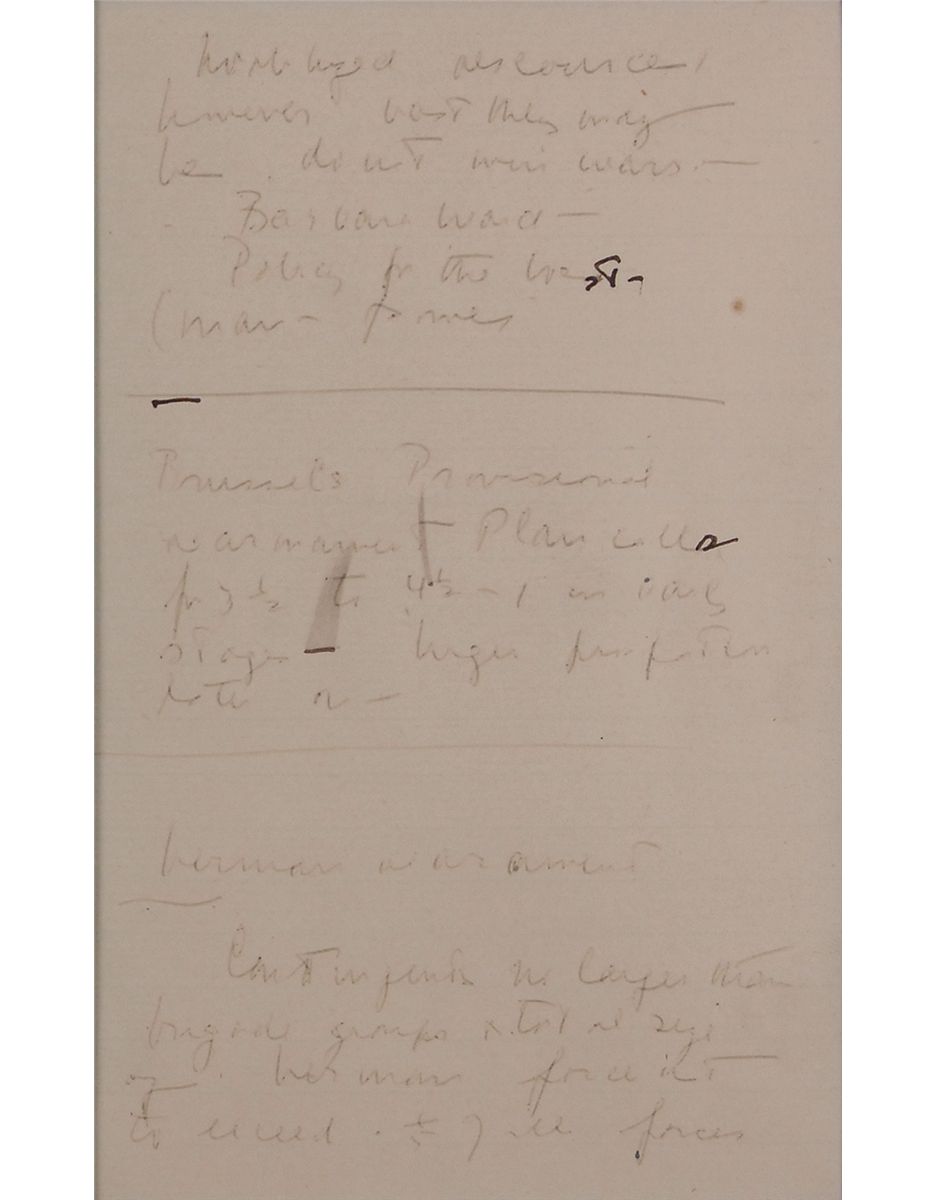 resources,
however vast they may
be. don't win wars. —
Barbara Ward —
Policy for the West —
(man —
Brussels Provisional
rearmament Plan calls
for 3 ½ to 4 ½ - 1 in early
stages — larger proportion
later on —
German rearmament
Contingents no larger than
brigade groups & total size
of German force not
to exceed forces